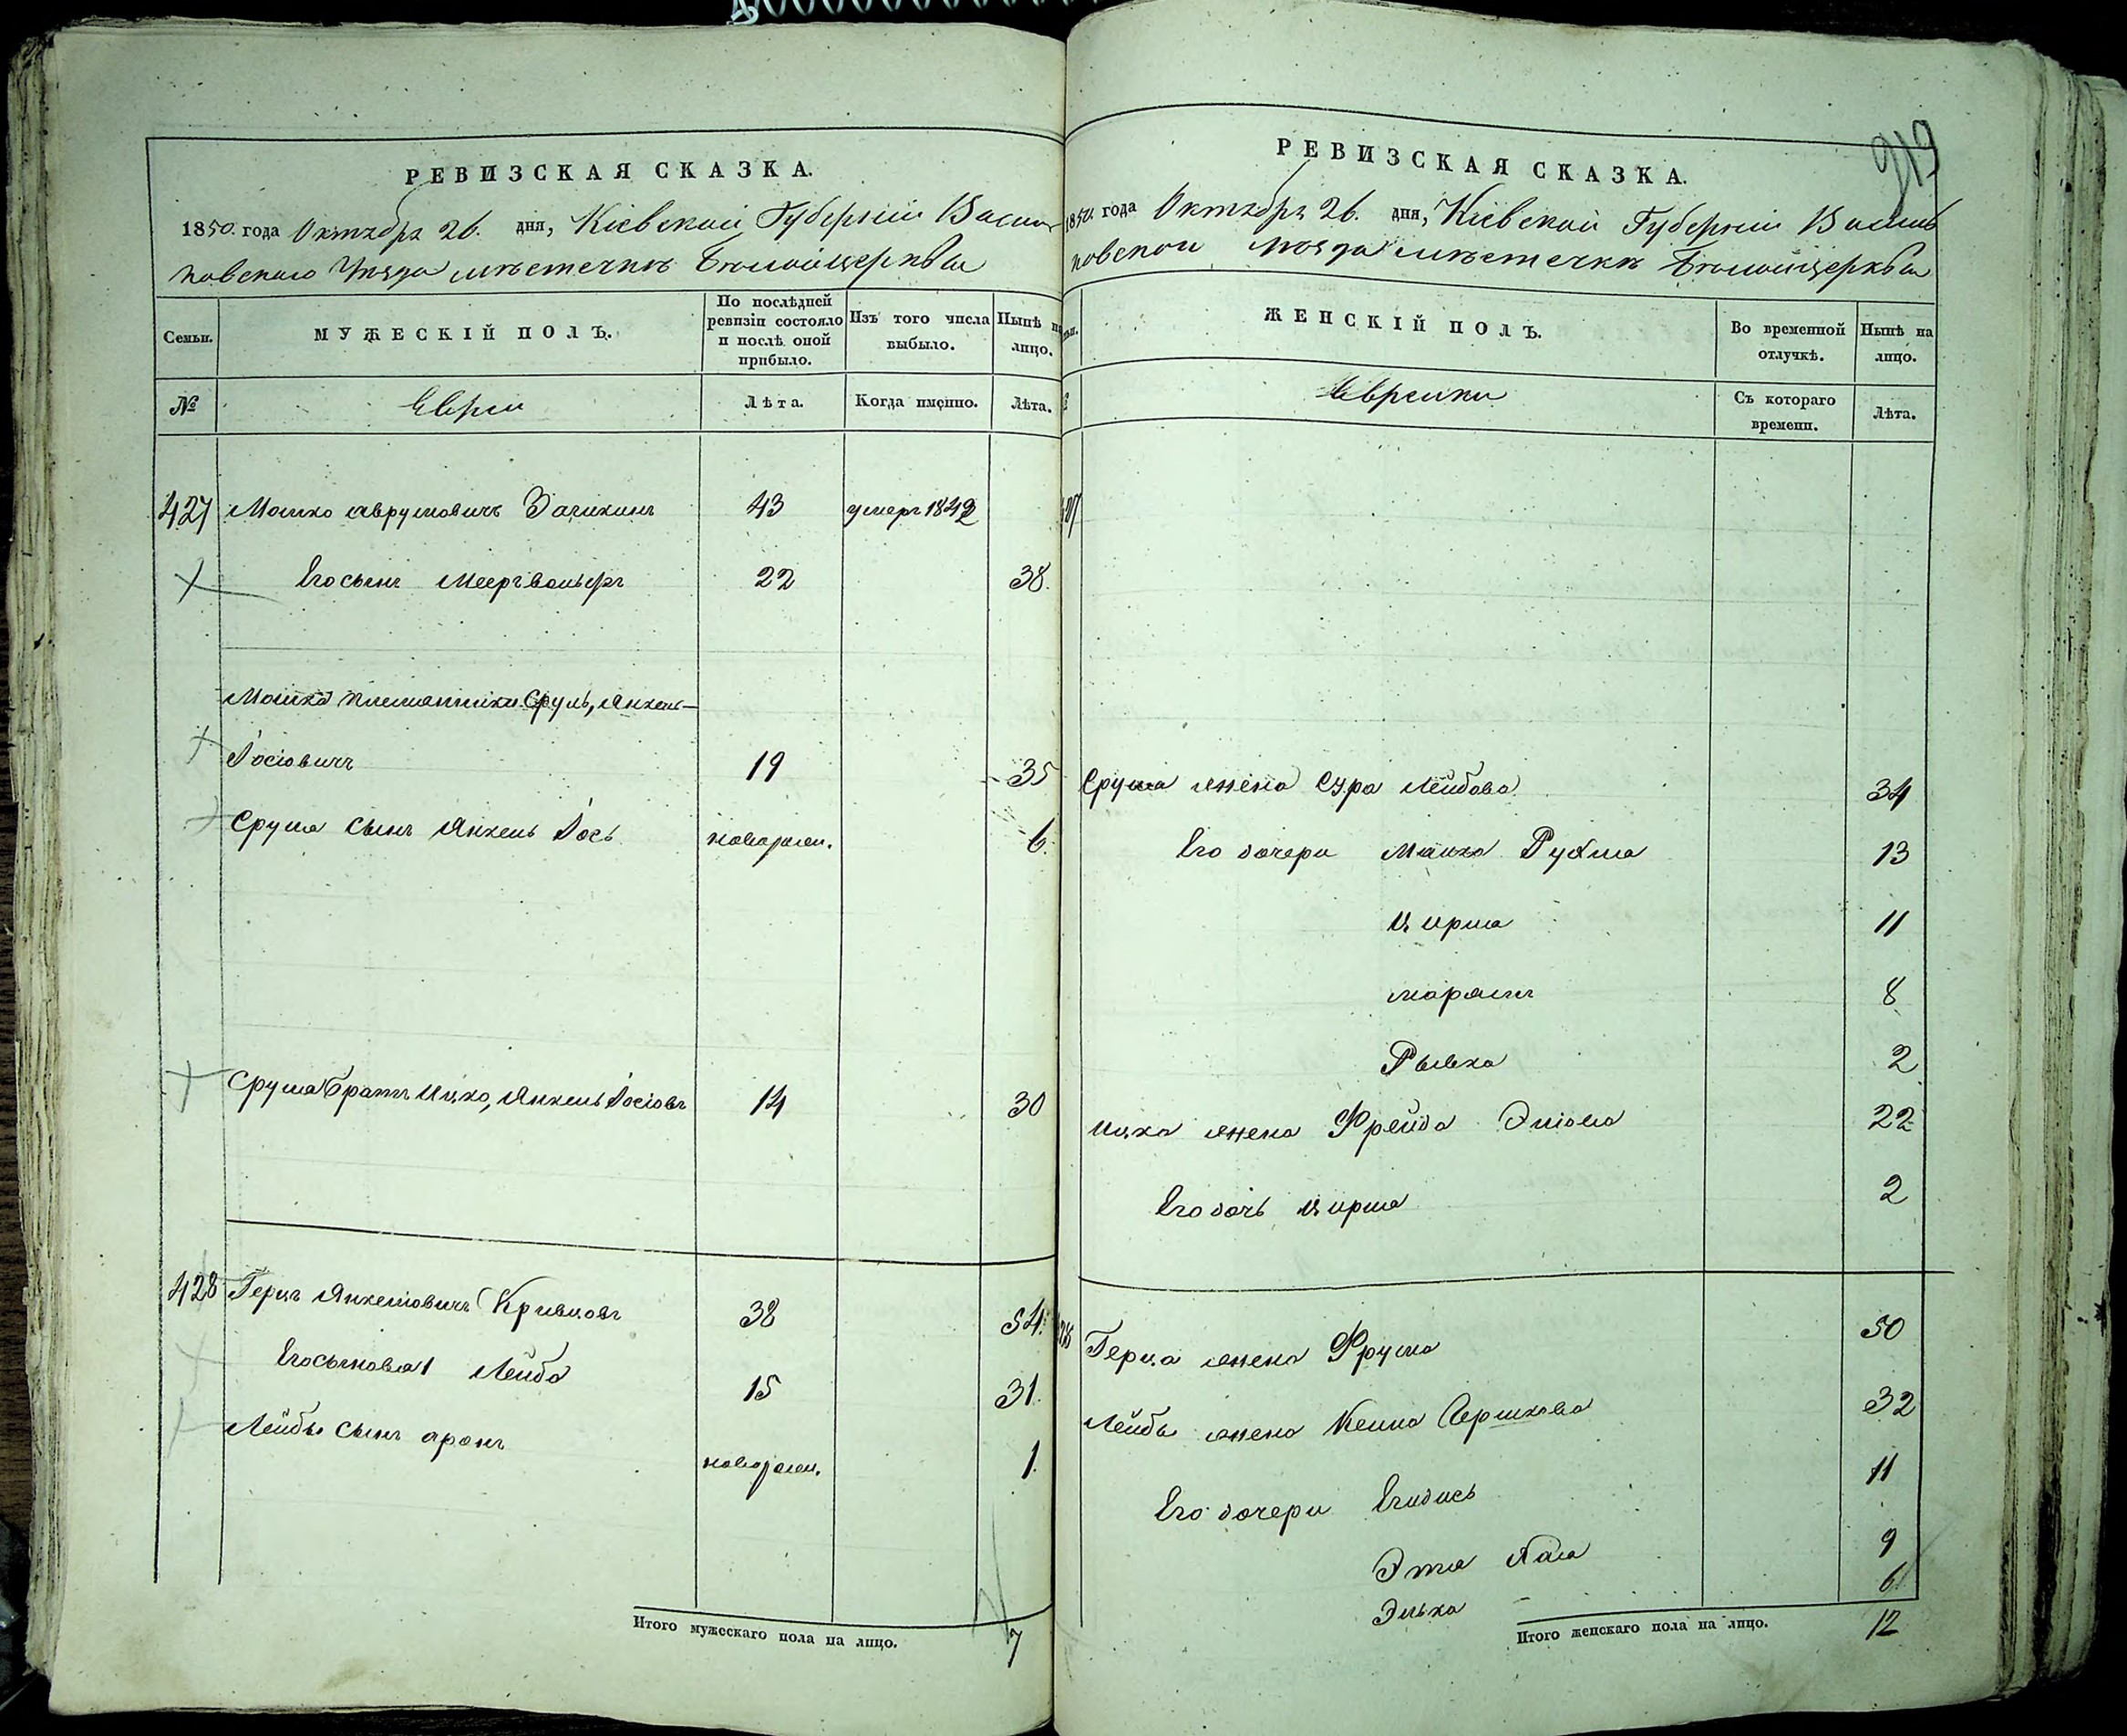 РЕВИЗСКАЯ СКАЗКА.
1850. года Октября 26. дня, Кіевской Губерніи Василь
ковскаго Уѣзда мѣстечкѣ Бѣлойцеркви
Семьи.
МУЖЕСКІЙ ПОЛЪ.
По послѣдней
ревизіи состояло
и послѣ оной
прибыло.
Изъ того числа
выбыло.
Нынѣ на
лицо.
№
Евреи
Лѣта.
Когда именно.
Лѣта.
427 Мошко Аврумовичъ 43 умеръ 1842
Его сынъ Мееръ Вольфъ 22 38.
Мошка племянники Сруль, Янкель
Іосіовичъ 19 35
Сруля сынъ Янкель Іось новорожден. 6.
Сруля братъ Ицко, Янкель Іосіовъ 14 30
428 Герцъ Янкеліовичъ Кривцовъ 38 54.
Его сыновья 1 Лейба 15 31.
Лейбы сынъ Аронъ новорожден. 1.
Итого мужескаго пола на лицо. 7
919
РЕВИЗСКАЯ СКАЗКА.
1850. года Октября 26. дня, Кіевской Губерніи Василь
ковской уѣзда мѣстечкѣ Бѣлойцеркви
ЖЕНСКІЙ ПОЛЪ.
Во временной
отлучкѣ.
Нынѣ на
лицо.
Еврейки
Съ котораго
времени.
Лѣта.
Сруля жена Сура Лейбова 34
Его дочери Малка Рухля 13
Цирля 11
8
Рывка 2
Ицка жена Фрейда 22
Его дочь Цирля 2
Герца жена Фрума 50
Лейбы жена Гершкова 32
Его дочери 11
Этля 9
Элька 6
Итого женскаго пола на лицо. 12